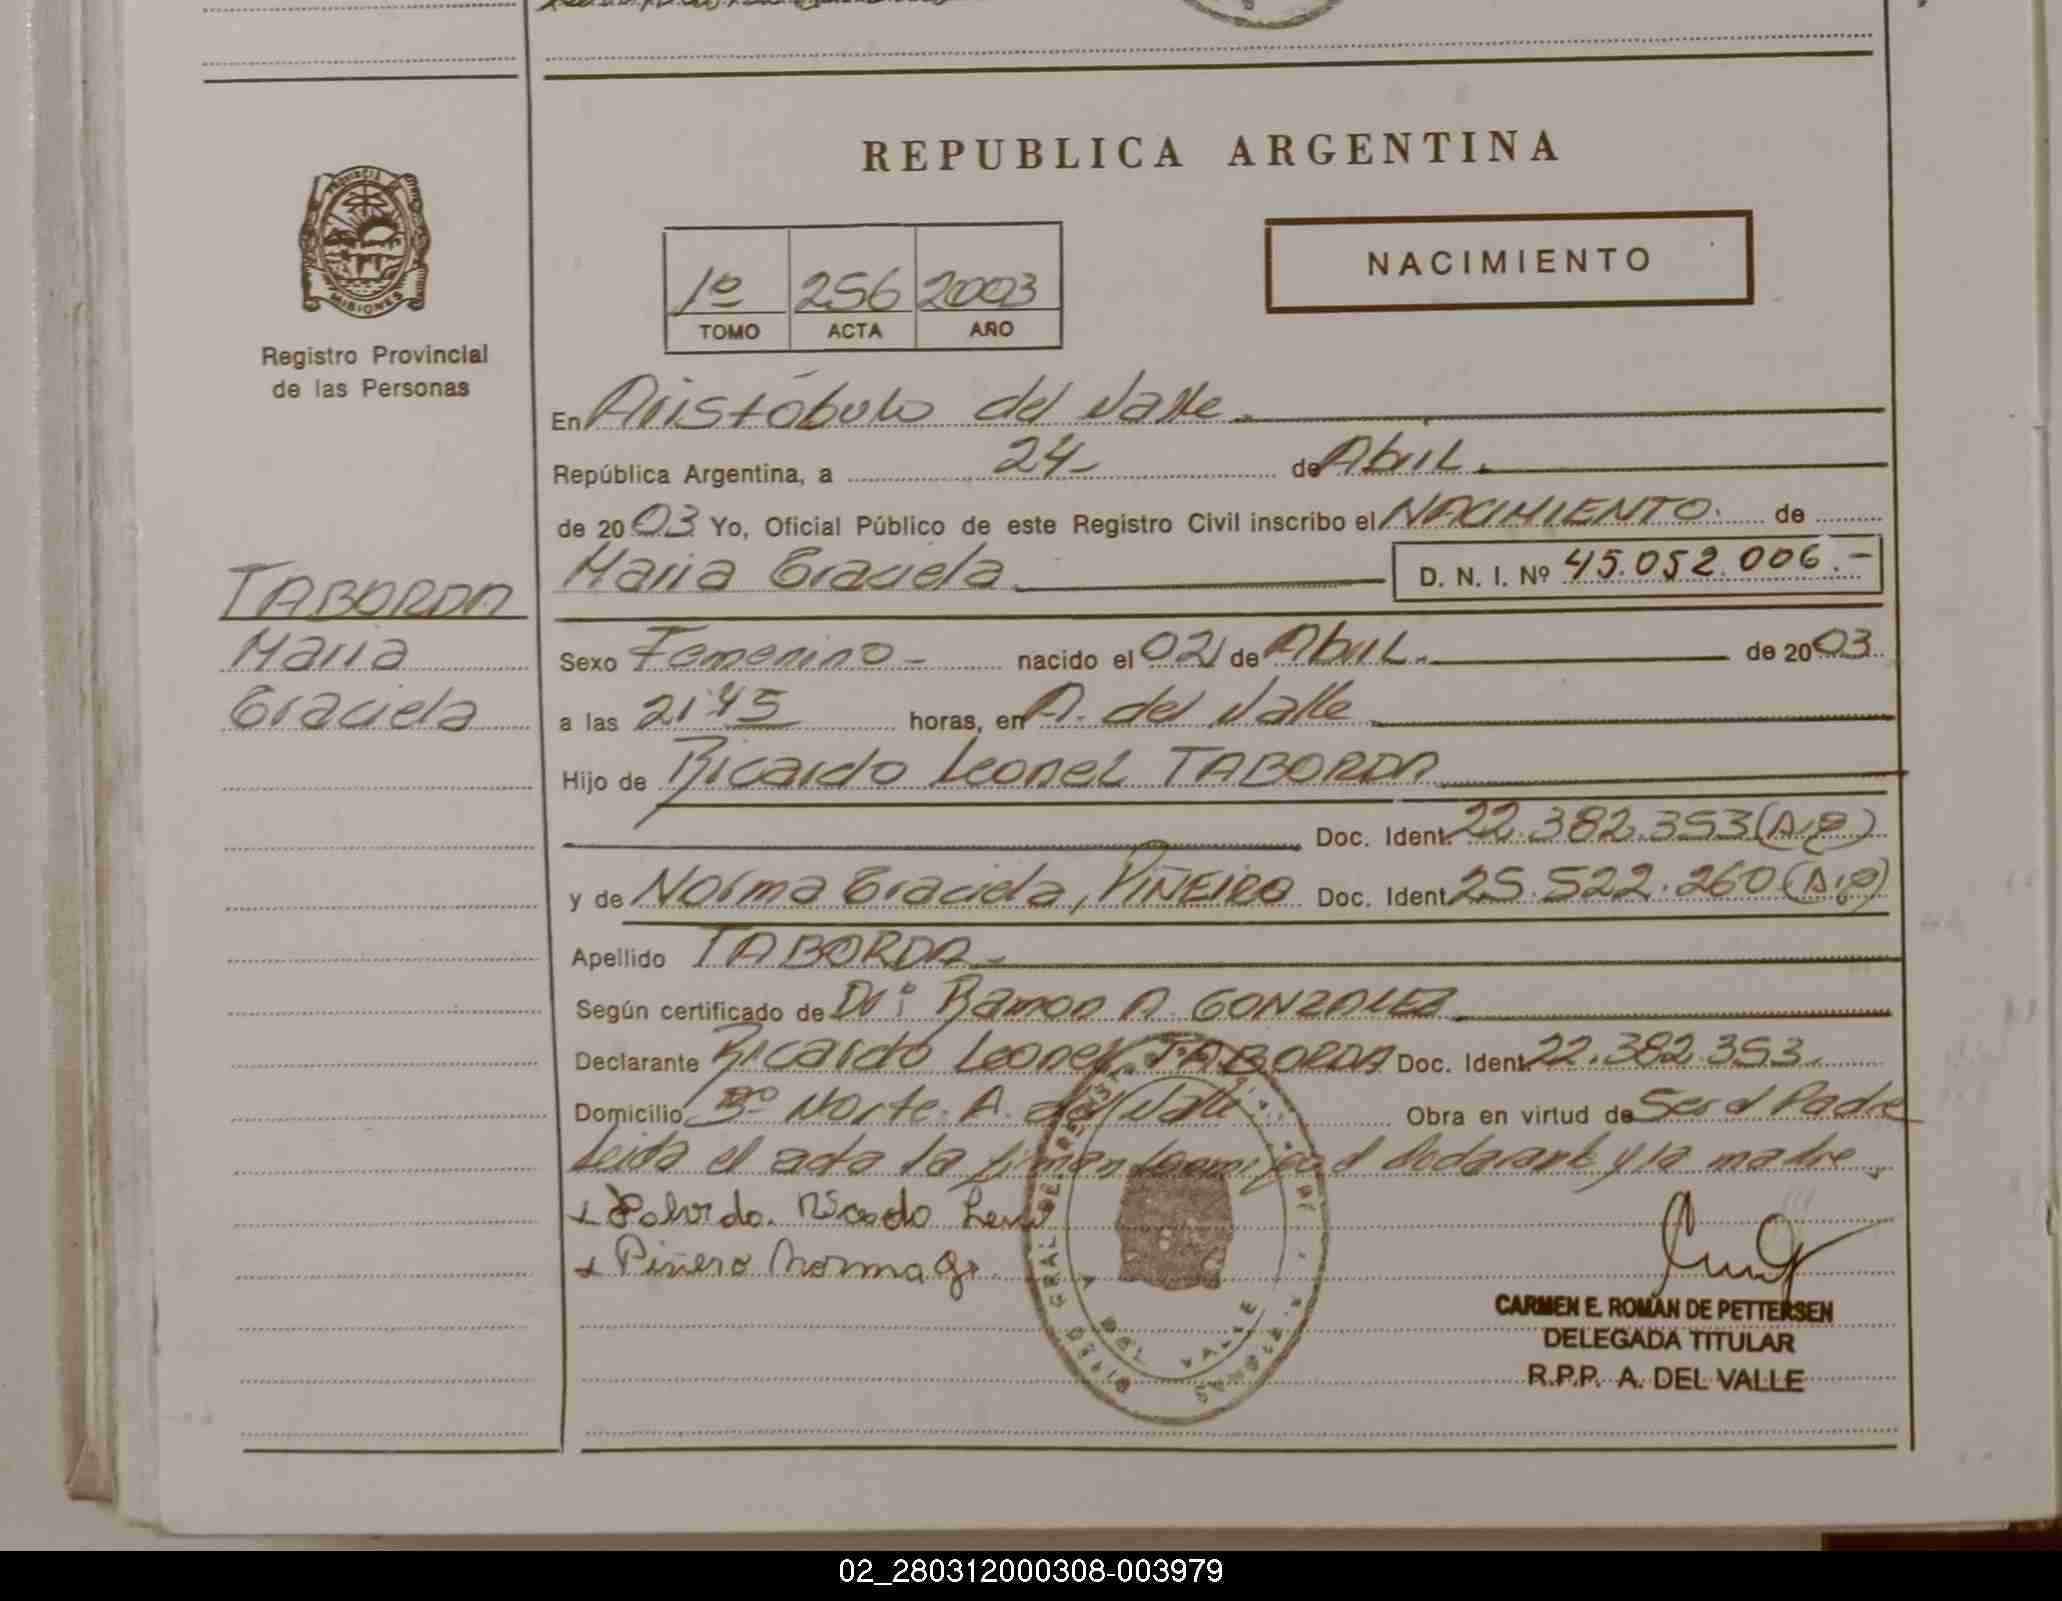 REPUBLICA ARGENTINA
PROVINCIA DE MISIONES
Registro Provincial
de las Personas
NACIMIENTO
1º 256 2003
TOMO ACTA AÑO
En Aristóbulo del Valle.
República Argentina, a 24- de Abril.
de 2003 Yo, Oficial Público de este Registro Civil inscribo el NACIMIENTO. de
Maria Graciela D. N. I. Nº 45.052.006.-
TABORDA
Maria
Graciela
Sexo Femenino- nacido el 02 de Abril. de 2003
a las 21:45 horas, en A. del Valle
Hijo de Ricardo Leonel TABORDA
Doc. Ident. 22.382.353
y de Norma Graciela, PIÑEIRO Doc. Ident. 25.522.260
Apellido TABORDA-
Según certificado de Dr: Ramon A. GONZALEZ
Declarante Ricardo Leonel TABORDA Doc. Ident. 22.382.353.
Domicilio Bº Norte. A. del Valle Obra en virtud de Ser el Padre
Leida el acta la firman conmigo el declarante y la madre.
Ricardo
Piñero Norma G.
A DEL VALLE
CARMEN E. ROMAN DE PETTERSEN
DELEGADA TITULAR
R.P.P. A. DEL VALLE
02_280312000308-003979